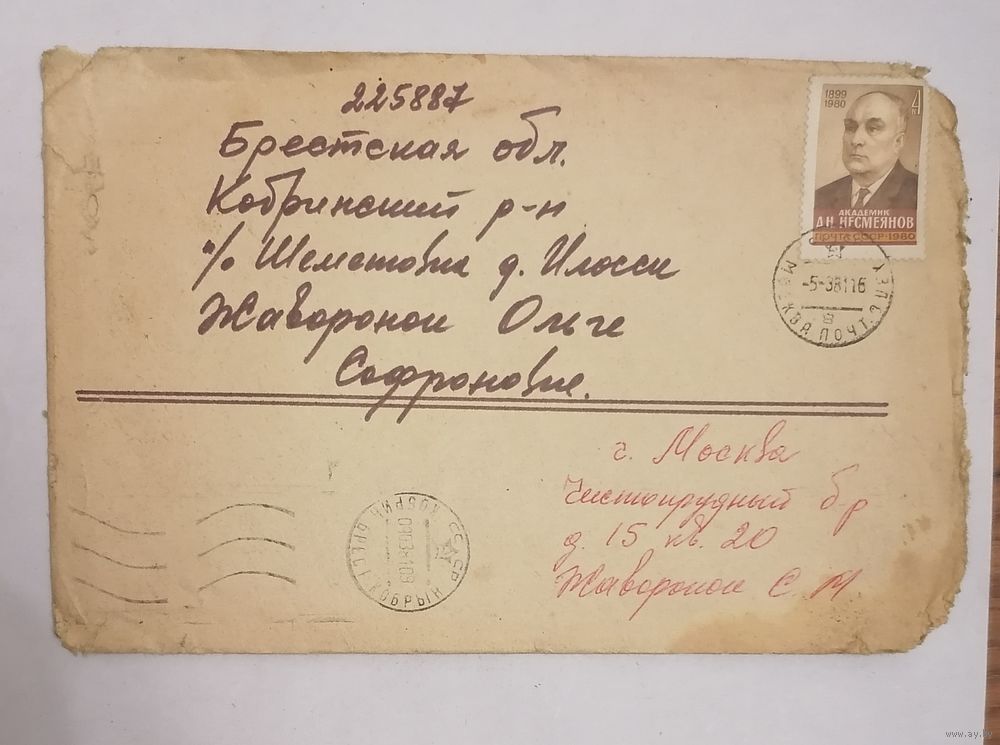 225887
Брестская обл.
Кобринский р-н
п/о Шеметовка д. Илосск
Жаворонок Ольге
Софроновне.
1899
1980
4
к
АКАДЕМИК
А.Н. НЕСМЕЯНОВ
ПОЧТА СССР • 1980
МОСКВА ПОЧТ.
-5-38116
г. Москва
Чистопрудный б-р
д. 15 кв. 20
Жаворонок С. М
СССР
КОБРИН БРЕСТ КОБРЫН
www.ay.by